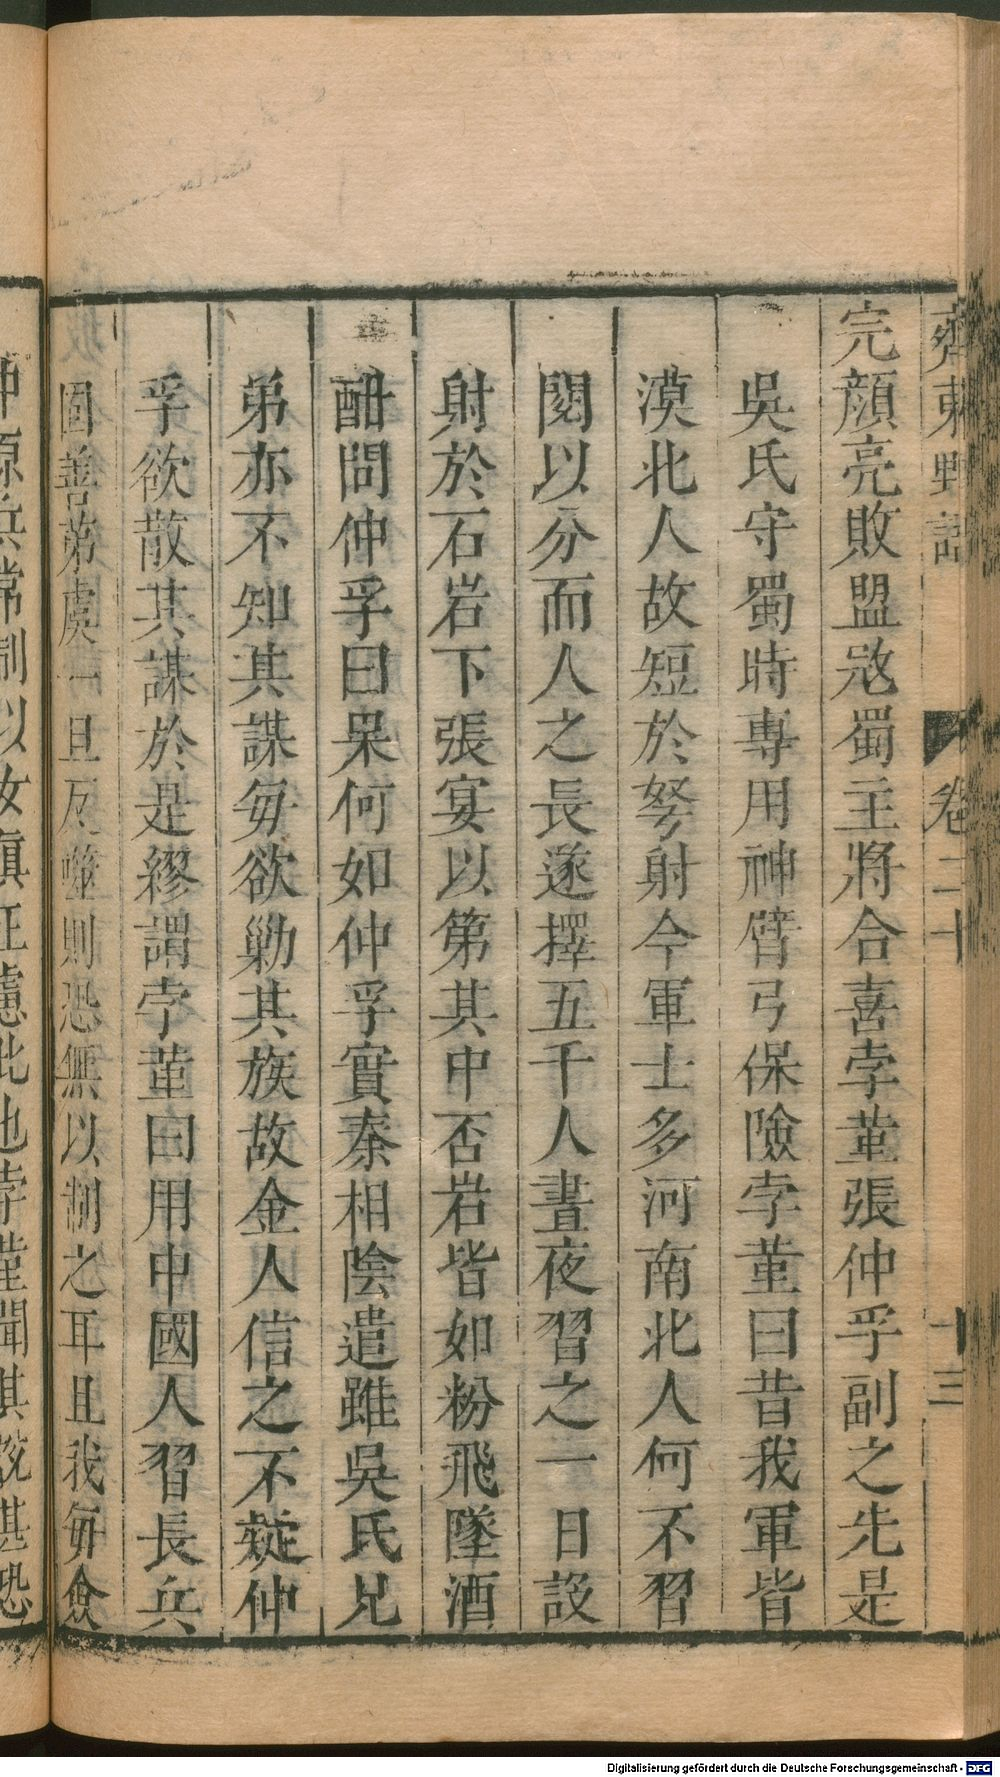 齊東野語
卷二十
十三
完顏亮敗盟㓂蜀主將合喜孛菫張仲孚副之先是
吳氏守蜀時專用神臂弓保險孛菫曰昔我軍皆
漠北人故短於弩射今軍士多河南北人何不習
閱以分而人之長遂擇五千人晝夜習之一日設
射於石岩下張宴以第其中否岩皆如粉飛墜酒
酣問仲孚曰杲何如仲孚實秦相陰遣雖吳氏兄
弟亦不知其謀毎欲勦其族故金人信之不疑仲
孚欲散其謀於是繆謂孛菫曰用中國人習長兵
固善第虞一旦反噬則恐無以制之耳且我毎僉
中原兵常制以女真正慮此也孛菫聞其說甚恐
Digitalisierung gefördert durch die Deutsche Forschungsgemeinschaft - DFG